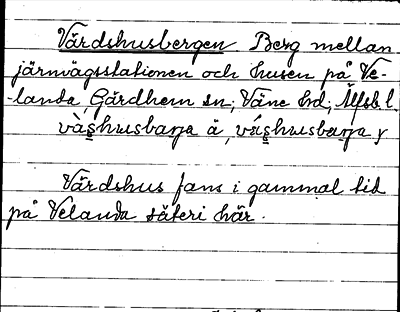 Värdshusbergen Berg mellan
järnvägsstationen och husen på Ve-
-landa, Gärdhem sn; Väne hd; Älfsb. l.
và̀s̱husbarja ä, vás̱husbarja y
Värdshus fans i gammal tid
på Velanda säteri här.